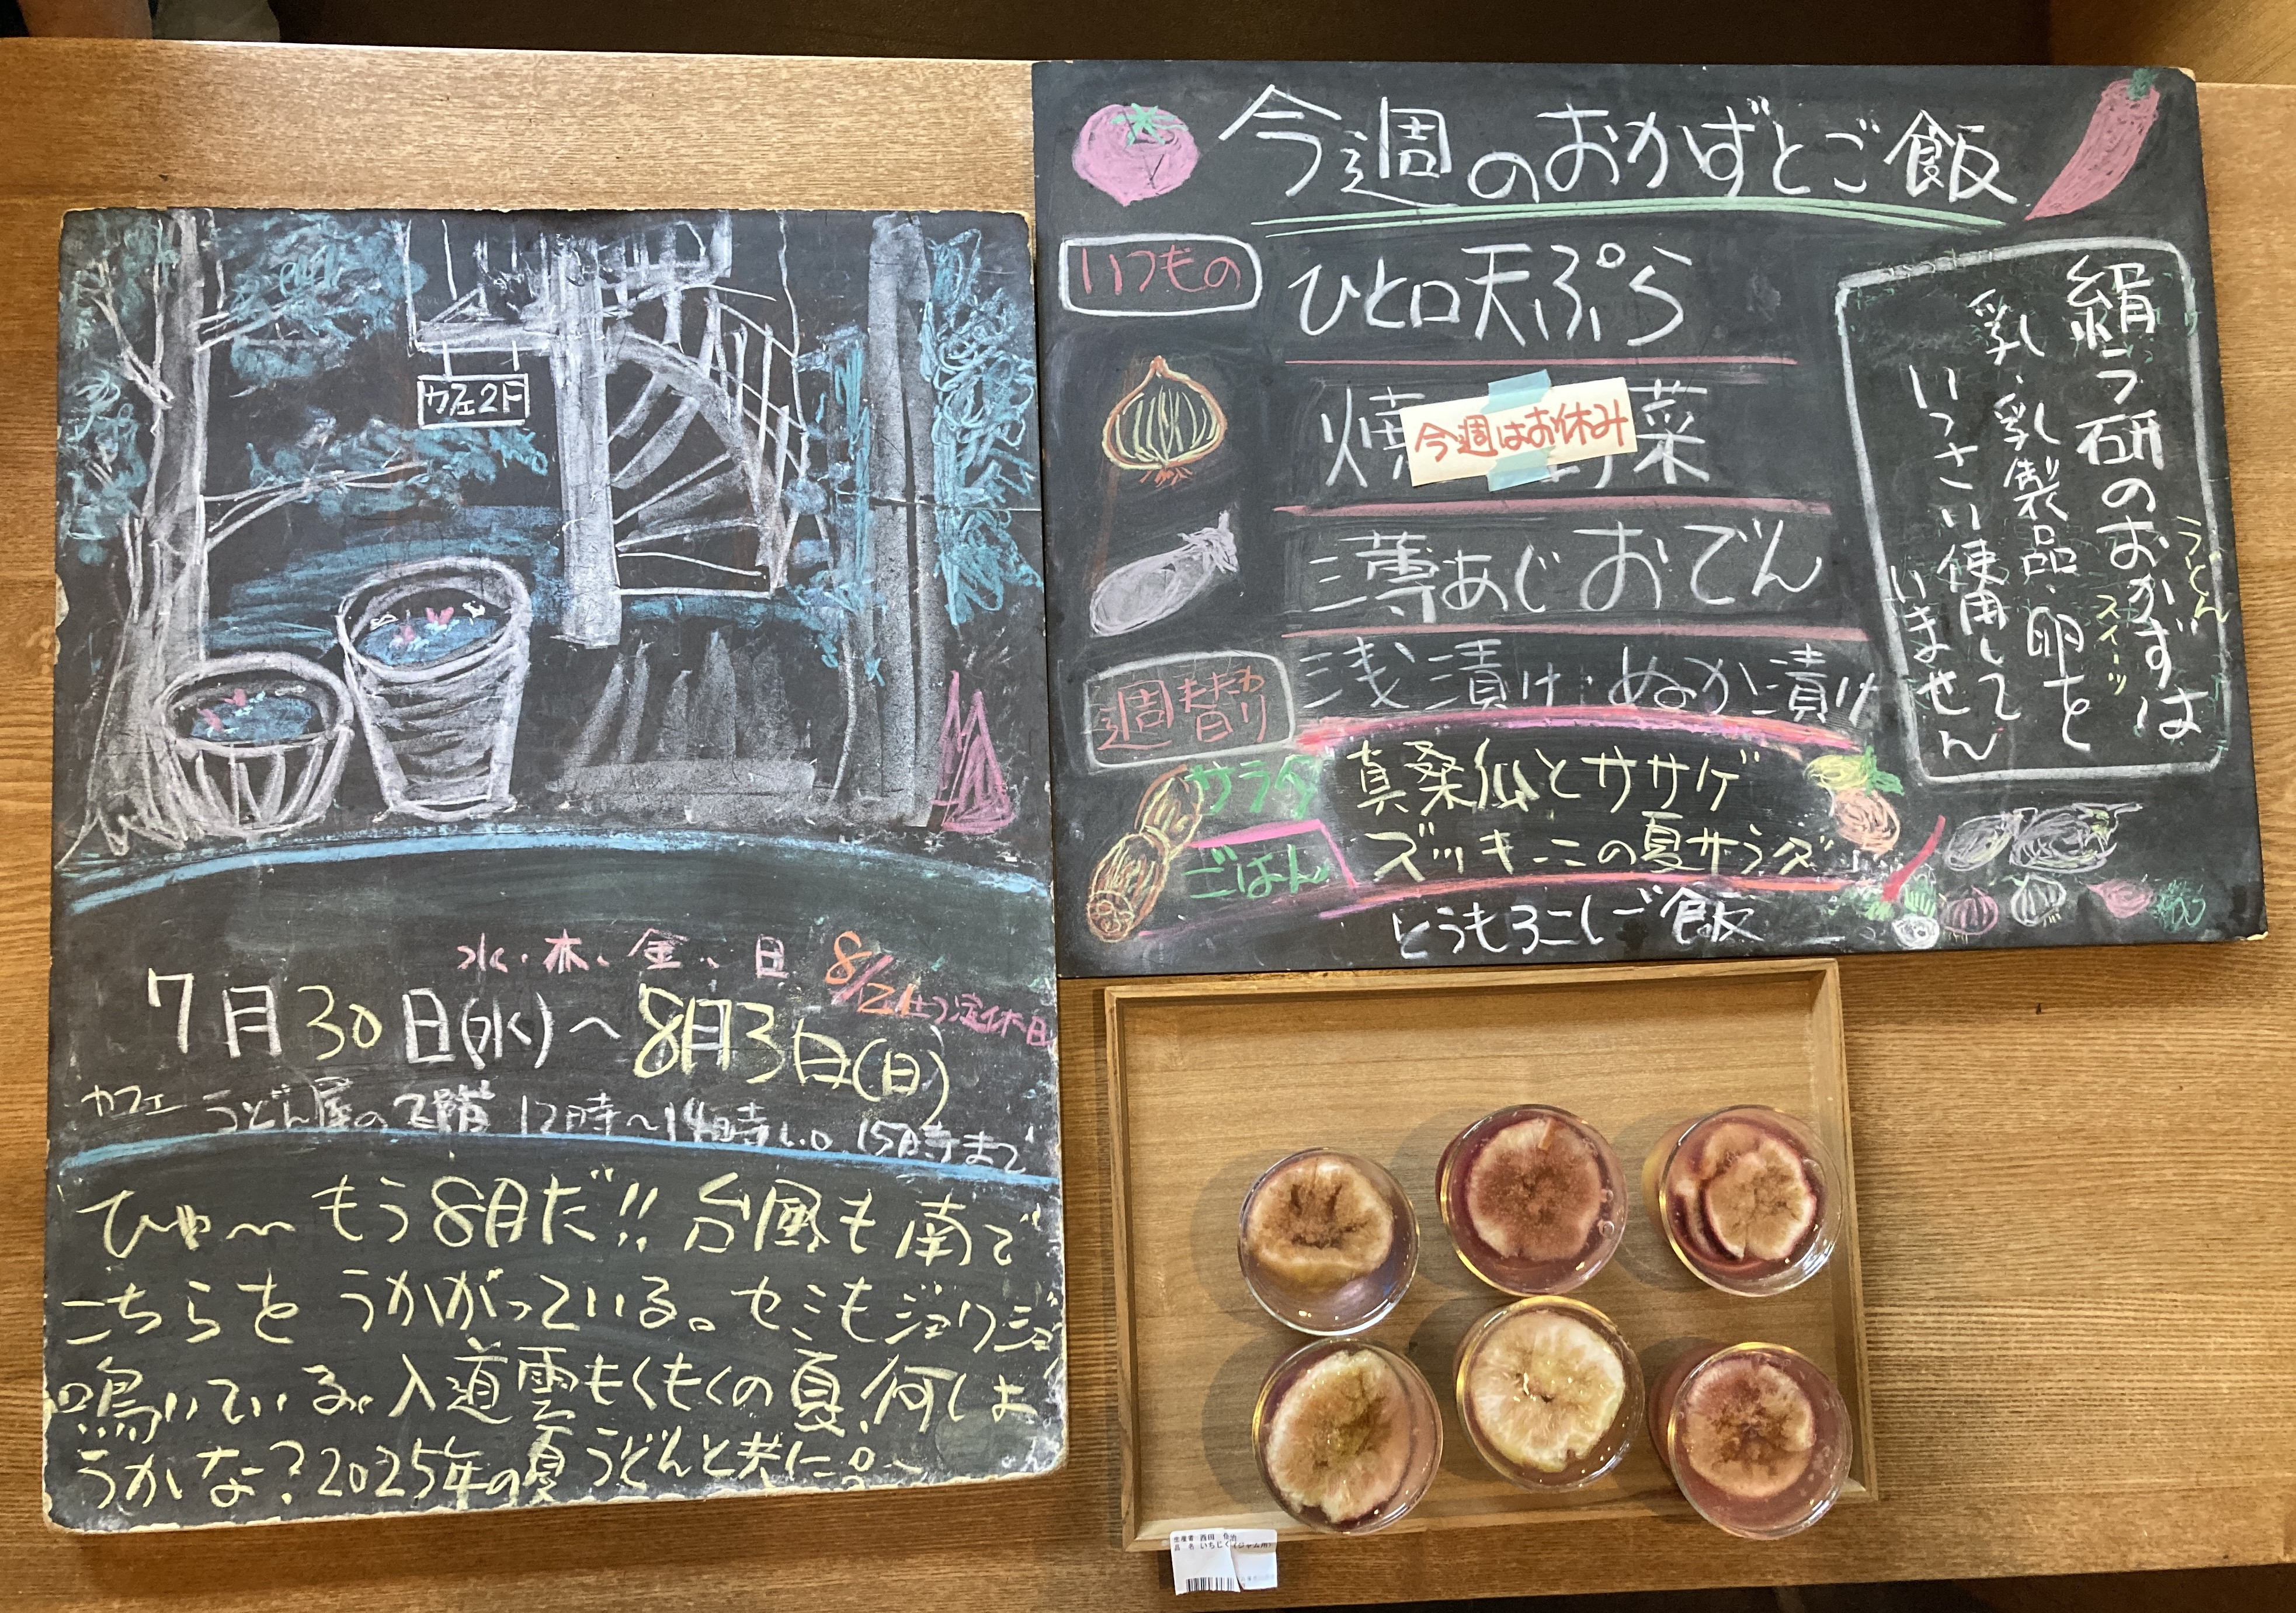 カフェ2F
水・木・金・日
8/2(土)定休日
7月30日(水)〜8月3日(日)
カフェ うどん屋の2階 12時〜14時L.O. 15時まで
ひゃ〜もう8月だ!! 台風も南で
こちらをうかがっている。セミもジョワジョワ
鳴いている。入道雲もくもくの夏、何しよ
うかな?2025年の夏うどんと共に。
今週のおかずとご飯
いつもの
ひと口天ぷら
焼 菜
今週はお休み
薄あじおでん
浅漬け・ぬか漬け
週替わり
サラダ
真桑瓜とササゲ
ズッキーニの夏サラダ
ごはん
とうもろこしご飯
絹ラ研のおかずは
うどん
スイーツ
乳・乳製品・卵を
いっさい使用して
いません
生産者 西田
品 名 いちじく(ジャム用)